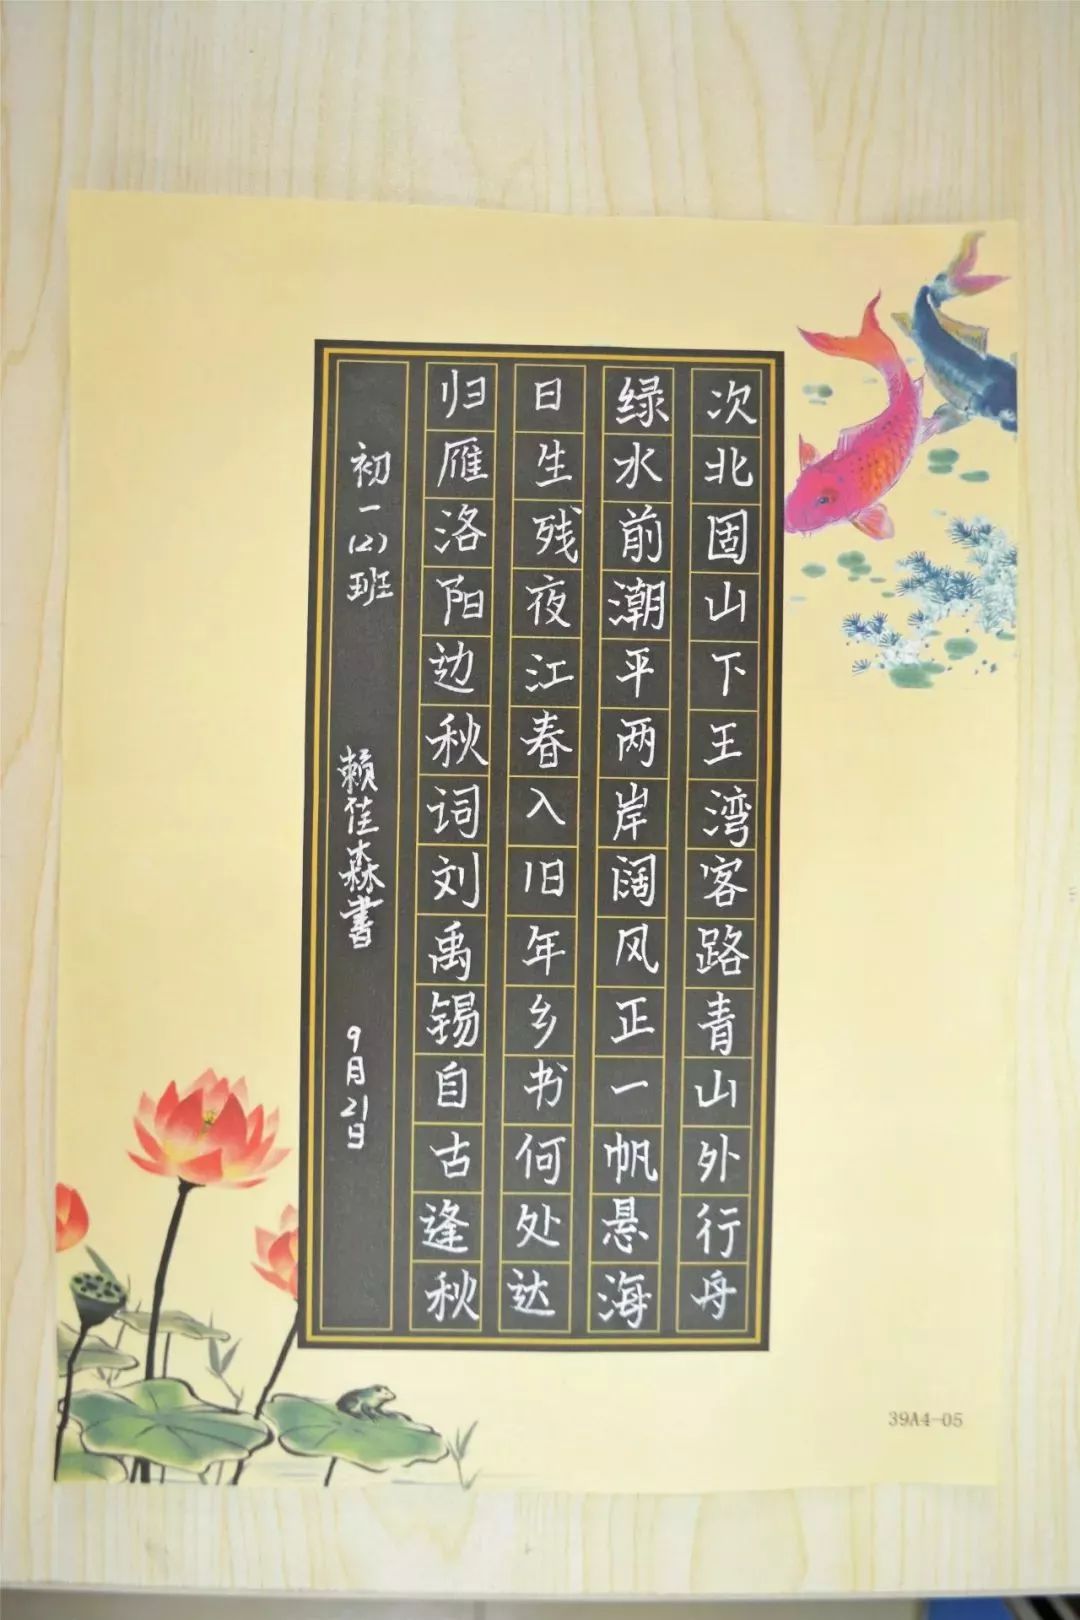 次北固山下王湾客路青山外行舟
绿水前潮平两岸阔风正一帆悬海
日生残夜江春入旧年乡书何处达
归雁洛阳边秋词刘禹锡自古逢秋
初一(2)班 赖佳森書 9月21日
39A4-05